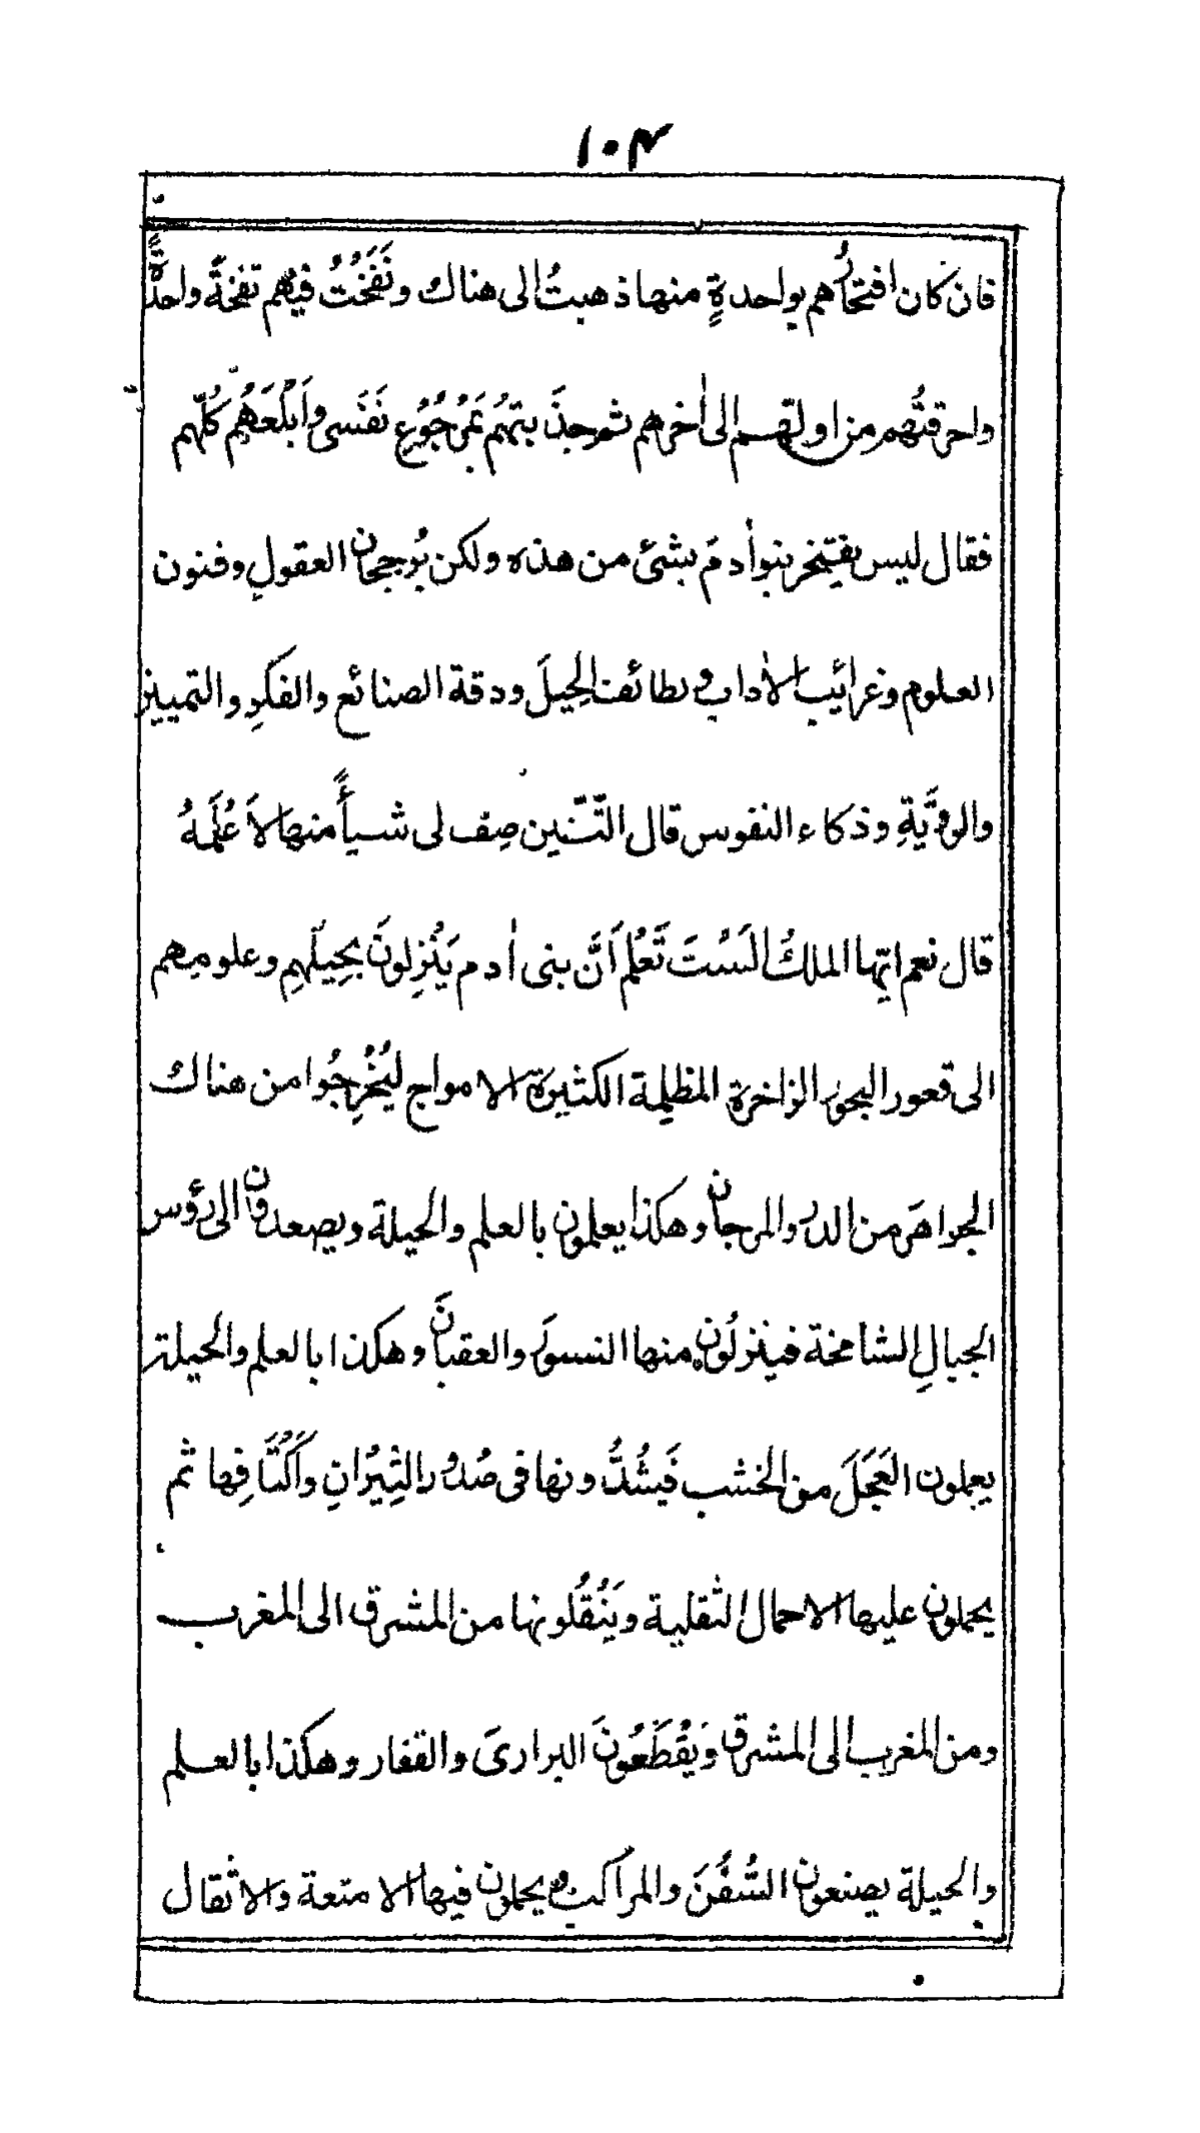 ١٠٤
فان كان افتخارُهم بواحدةٍ منها ذهبتُ الى هناك ونَفَخْتُ فيهم نفخةً واحدةً
واحرقتُهم من اولهم الى اٰخرهم ثم جذَبتُهُم بِرُجُوعِ نَفَسى واَبْلَعُهُم كُلّهم
فقال ليس يفتخر بنو اٰدمَ بشئ من هذه ولكن بُرجحان العقولِ وفنون
العلوم وغرائبِ الاٰدابِ ولطائف الحِيَلَ ودقة الصنائع والفكرِ والتمييز
والروِيَّةِ وذكاء النفوس قال التّنّين صِف لى شيأً منها لاَعْلَمهُ
قال نعم ايّها الملكُ اَلَسْتَ تَعْلم اَنَّ بنى اٰدم يَنْزِلونَ بحِيَلهِم وعلومِهم
الى قعور البحور الزاخرة المظلمة الكثيرة الامواج ليُخْرِجُوا من هناك
الجواهَر من الدر والمرجان وهكذا يعلمون بالعلم والحيلة ويصعدون الى رؤس
الجبالِ الشامخة فينزلُون منها النسورَ والعقبانَ وهكذا بالعلم والحيلة
يعملون العَجَلَ من الخشب فَيشُدُّونها فى صُدُور الثِيْرانِ واَكْتَافِها ثم
يحملون عليها الاحمال الثقلية ويَنْقُلونها من المشرق الى المغرب
ومن المغرب الى المشرق وَيقْطَعُونَ البرارىَ والقفار وهكذا بالعلم
والحيلة يصنعون السُّفُنَ والمراكب ويحملون فيها الامتعة والاثقال